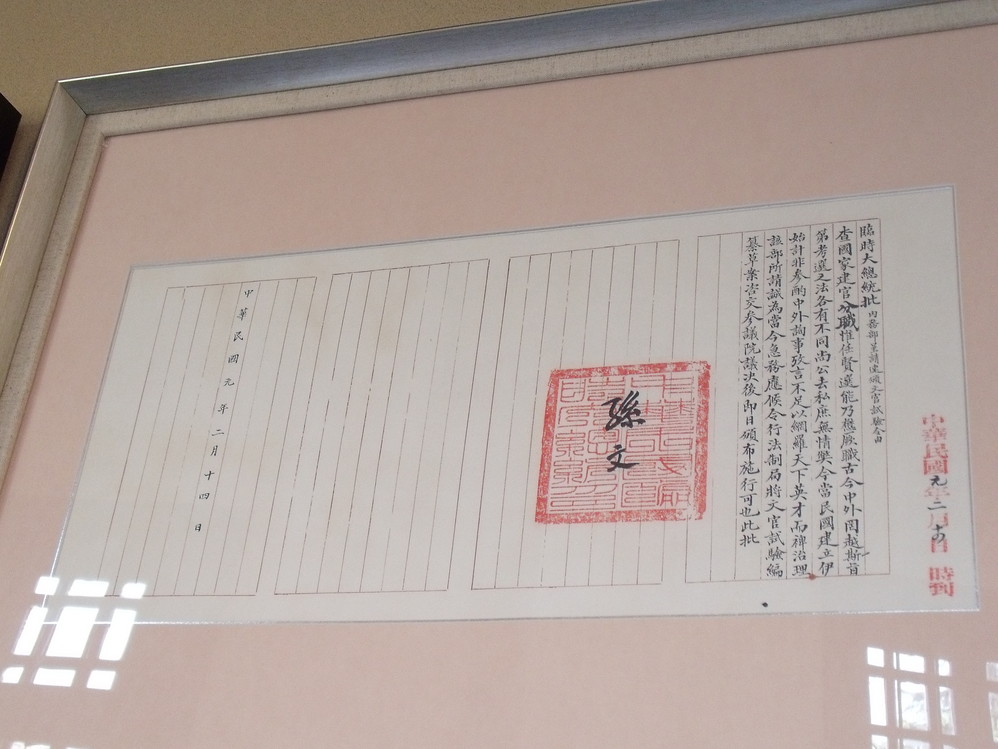 中華民國元年二月十四日 時到
臨時大總統批 內務部呈請速頒文官試驗令由
查國家建官分職惟任賢選能乃懋厥職古今中外罔越斯旨
第考選之法各有不同尚公去私庶無情弊今當民國建立伊
始計非參酌中外詢事攷言不足以網羅天下英才而裨治理
該部所請誠為當今急務應候令行法制局將文官試驗編
纂草案咨交參議院議决後即日頒布施行可也此批
中華民國臨
時大總統印
孫文
中華民國元年二月十四日